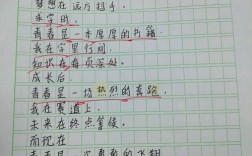 梦想在远方招手
求学时
青春是一本厚厚的书籍
我在字里行间
知识在每页深处
成长后
青春是一场热烈的赛跑
我在赛道上
未来在终点等候
而现在